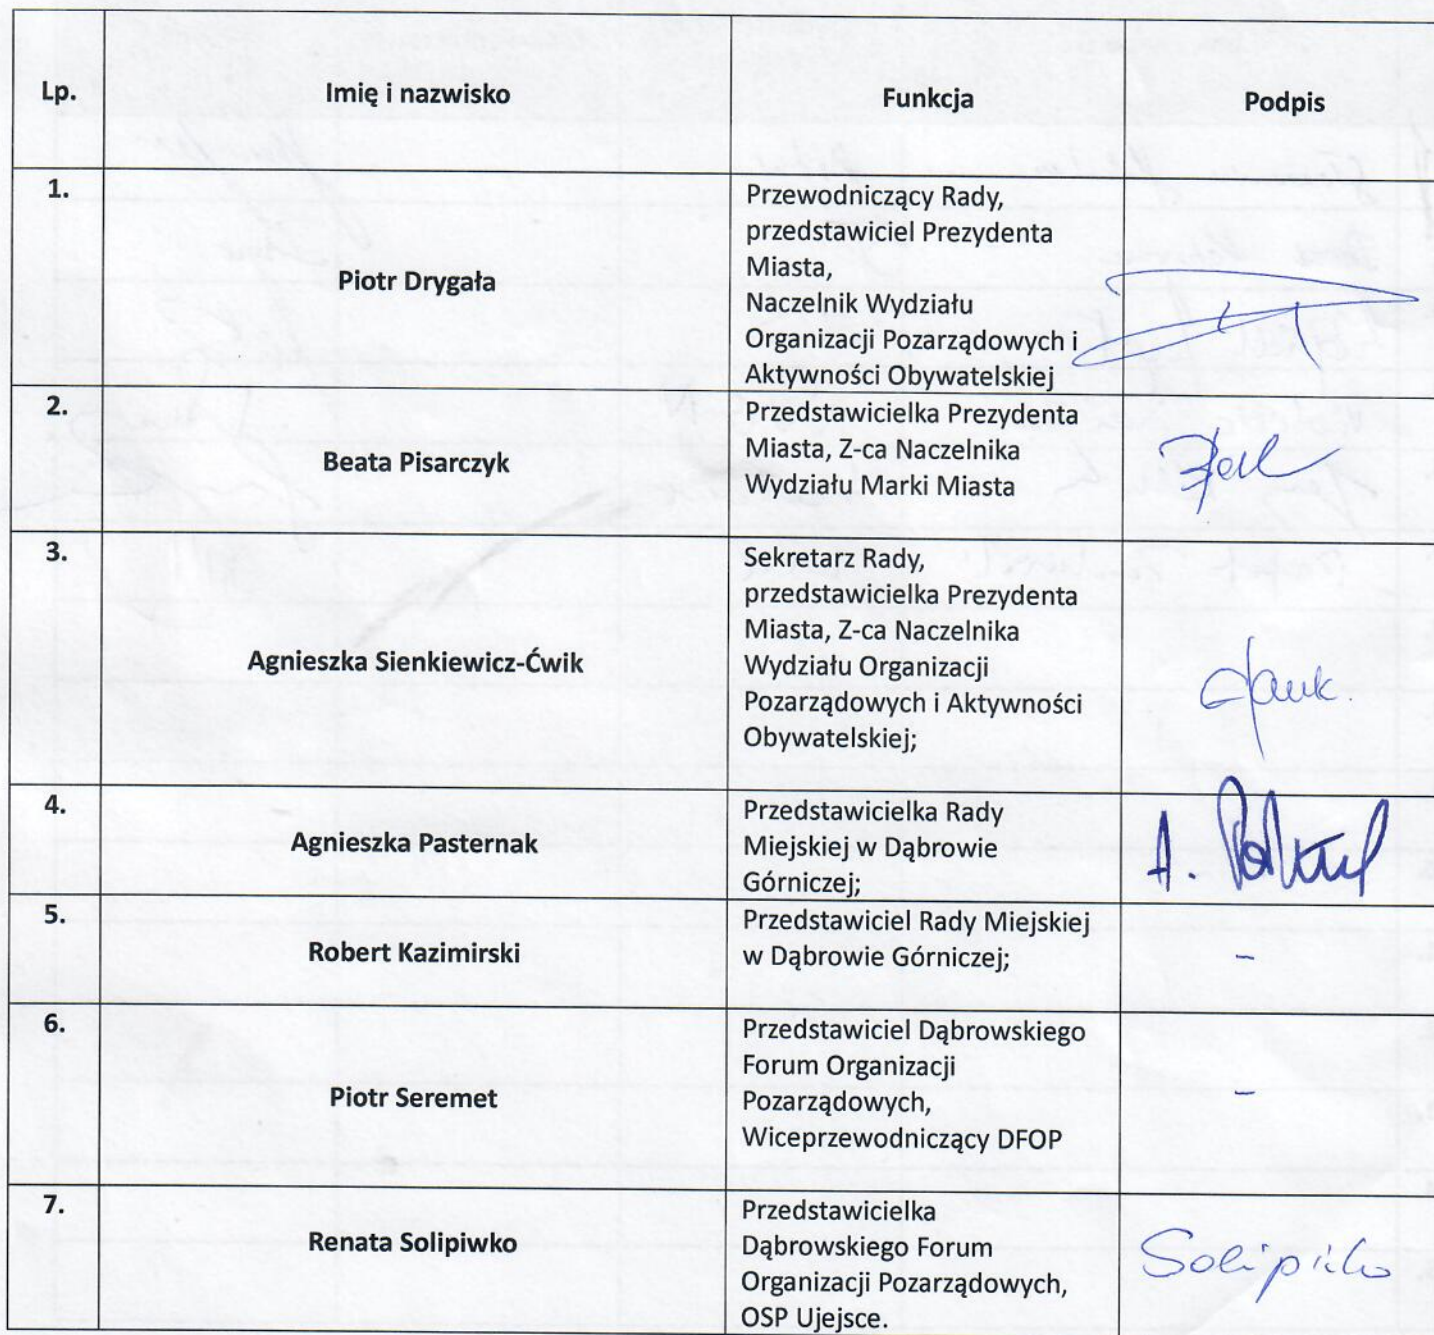 Lp. Imię i nazwisko Funkcja Podpis
1. Piotr Drygała Przewodniczący Rady,
przedstawiciel Prezydenta
Miasta,
Naczelnik Wydziału
Organizacji Pozarządowych i
Aktywności Obywatelskiej
2. Beata Pisarczyk Przedstawicielka Prezydenta
Miasta, Z-ca Naczelnika
Wydziału Marki Miasta
3. Agnieszka Sienkiewicz-Ćwik Sekretarz Rady,
przedstawicielka Prezydenta
Miasta, Z-ca Naczelnika
Wydziału Organizacji
Pozarządowych i Aktywności
Obywatelskiej;
4. Agnieszka Pasternak Przedstawicielka Rady
Miejskiej w Dąbrowie
Górniczej;
A.
5. Robert Kazimirski Przedstawiciel Rady Miejskiej
w Dąbrowie Górniczej; -
6. Piotr Seremet Przedstawiciel Dąbrowskiego
Forum Organizacji
Pozarządowych, -
Wiceprzewodniczący DFOP
7. Renata Solipiwko Przedstawicielka
Dąbrowskiego Forum
Organizacji Pozarządowych,
OSP Ujejsce.